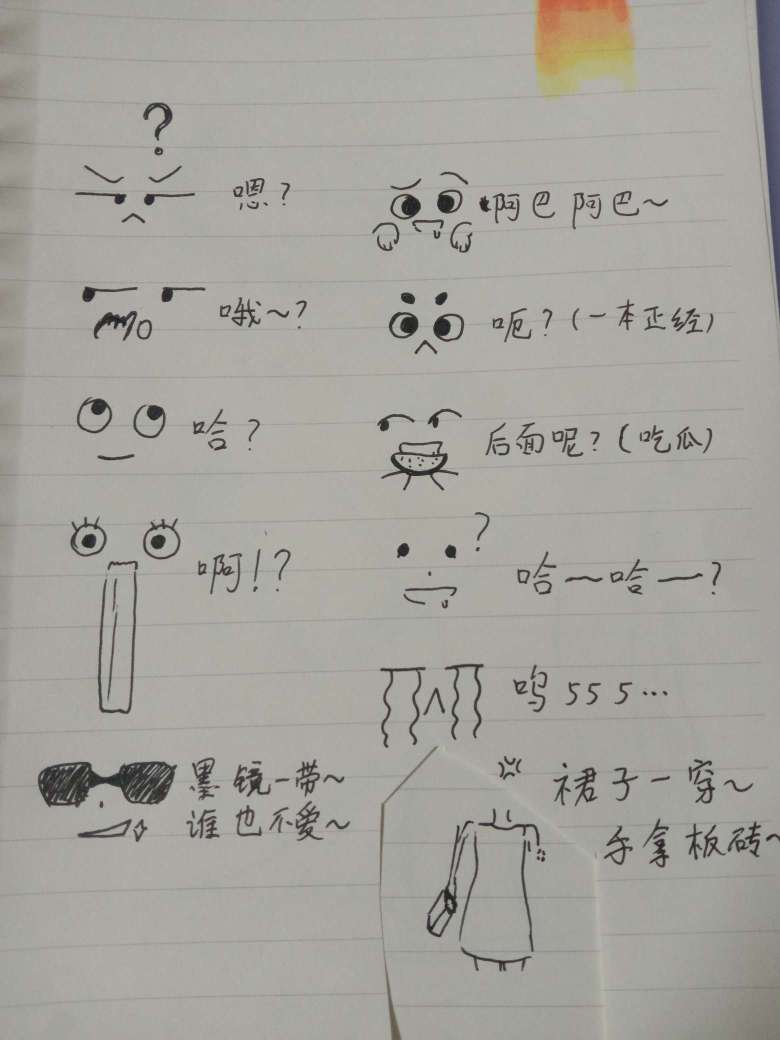 ?
嗯?
哦~?
哈?
啊!?
黑镜一带~
谁也不爱~
阿巴阿巴~
呃?(一本正经)
后面呢?(吃瓜)
?
哈~哈~?
呜555…
裙子一穿~
手拿板砖~